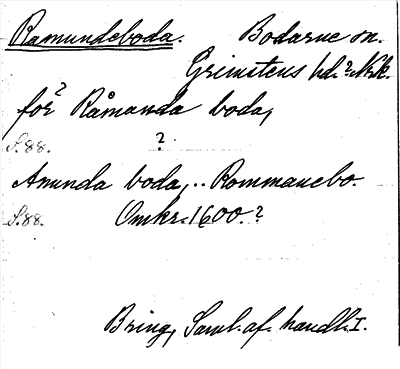 Ramundeboda. Bodarne sn.
Grimstens hd. Nrk.
for? Råmanda boda,
S. 88. ?
Anunda boda, .. Rommanebo.
S. 88. Omkr. 1600.?
Bring, Saml. af. handl. I.